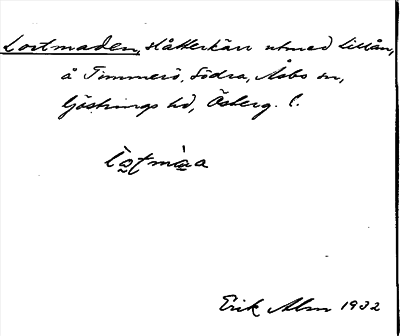 Lortmaden, slåtterkärr utmed Lillån,
å Timmerö, Södra, Åsbo sn,
Göstrings hd, Österg. l.
Erik Alm 1932